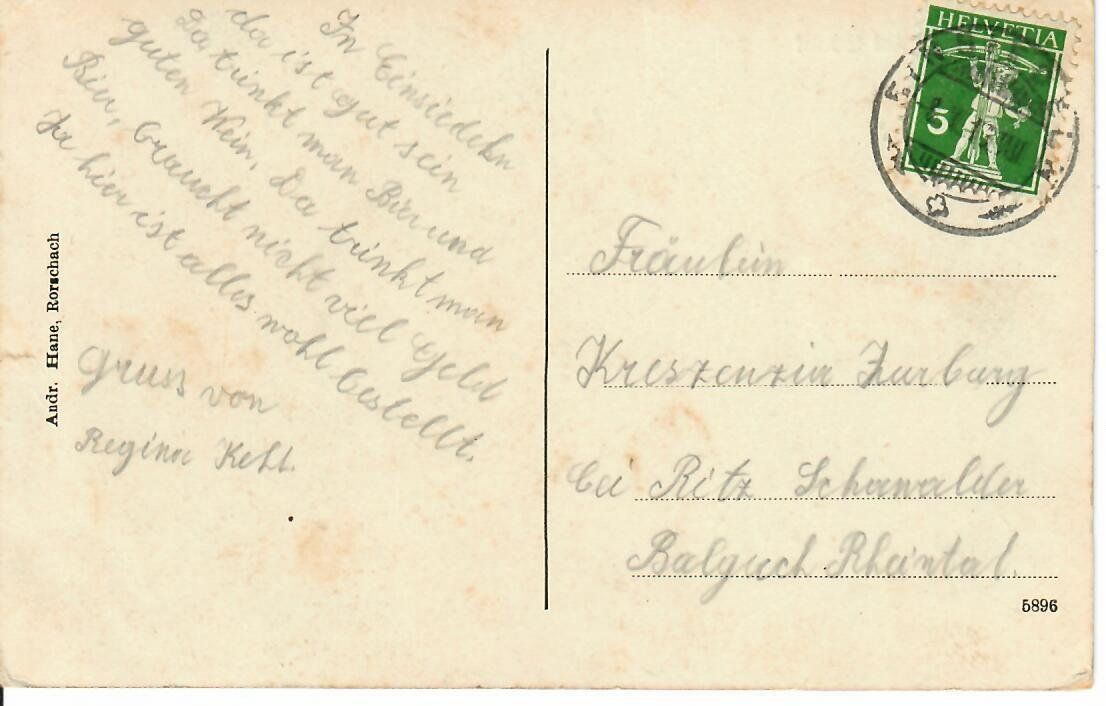 In Einsiedeln
da ist gut sein
Da trinkt man Bier und
guten Wein, Da trinkt man
Bier, braucht nicht viel Geld
Ja hier ist alles wohl bestellt.
Gruss von
Regina Kehl.
Andr. Hane, Rorschach
HELVETIA
5
Fräulein
Kreszenzia Zurburg
bei Ritz Schawalder
Balgach Rheintal.
5896